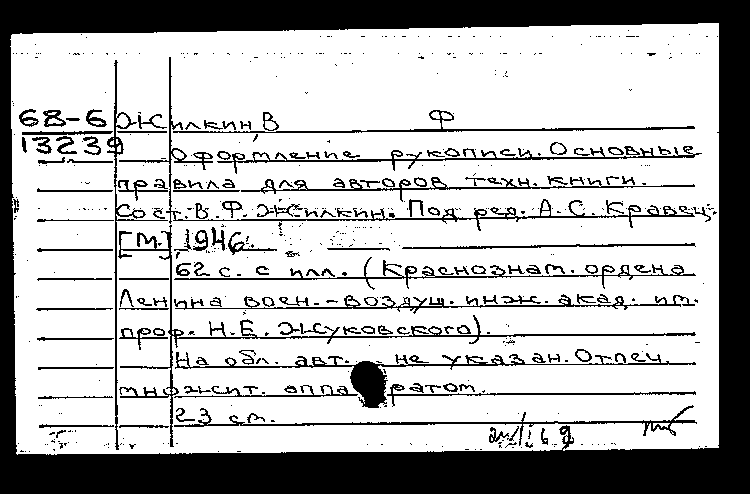 68-6 Жилкин, В Ф
13239 Оформление рукописи. Основные
правила для авторов техн. книги.
Сост. В. Ф. Жилкин. Под ред. А. С. Кравец.
[М.], 1946.
62 с. с илл. (Краснознам. ордена
Ленина воен.-воздуш. инж. акад. им.
проф. Н. Е. Жуковского).
На обл. авт. не указан. Отпеч.
множит. аппаратом.
23 см.